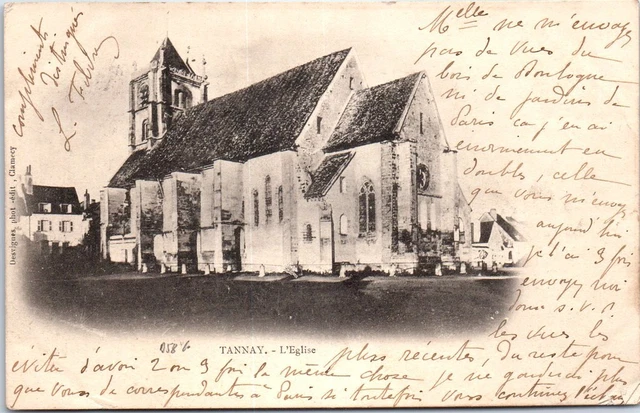 Mlle ne m'envoyez
pas de vues du
bois de Boulogne
ni de jardins de
Paris ca j'en ai
enormement en
doubles, celle
que vous m'envoyez
aujourd'hui
je l'ai 3 fois
envoyez moi
donc s.v.p.
les vues les
plus récentes, Du reste pour
éviter d'avoir 2 ou 3 fois la même chose je ne garderais plus
que vous de correspondantes à Paris si toutefois vous continuez
complimts
distingués
L.
Desvignes, phot.-édit., Clamecy
TANNAY. - L'Eglise